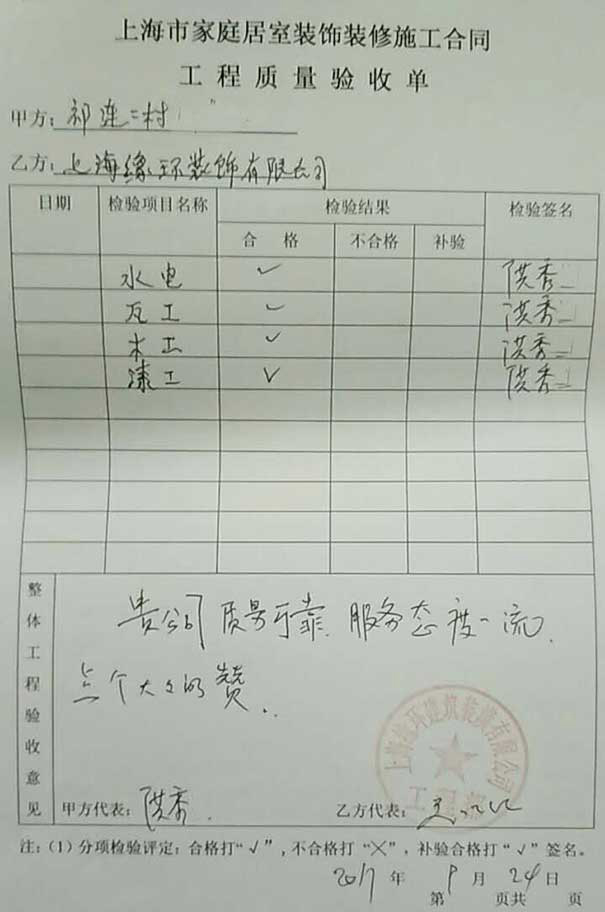 上海市家庭居室装饰装修施工合同
工程质量验收单
甲方：祁连二村
乙方：上海缘环装饰有限公司
日期 检验项目名称 检验结果 检验签名
合格 不合格 补验
水电 ✓ 洪秀
瓦工 ✓ 洪秀
木工 ✓ 洪秀
漆工 ✓ 洪秀
整体工程验收意见
贵公司质量可靠.服务态度一流.
点个大大的赞..
甲方代表：洪秀.
乙方代表：
注：(1)分项检验评定：合格打“√”，不合格打“╳”，补验合格打“√”签名。
2017年9月24日
第 页共 页